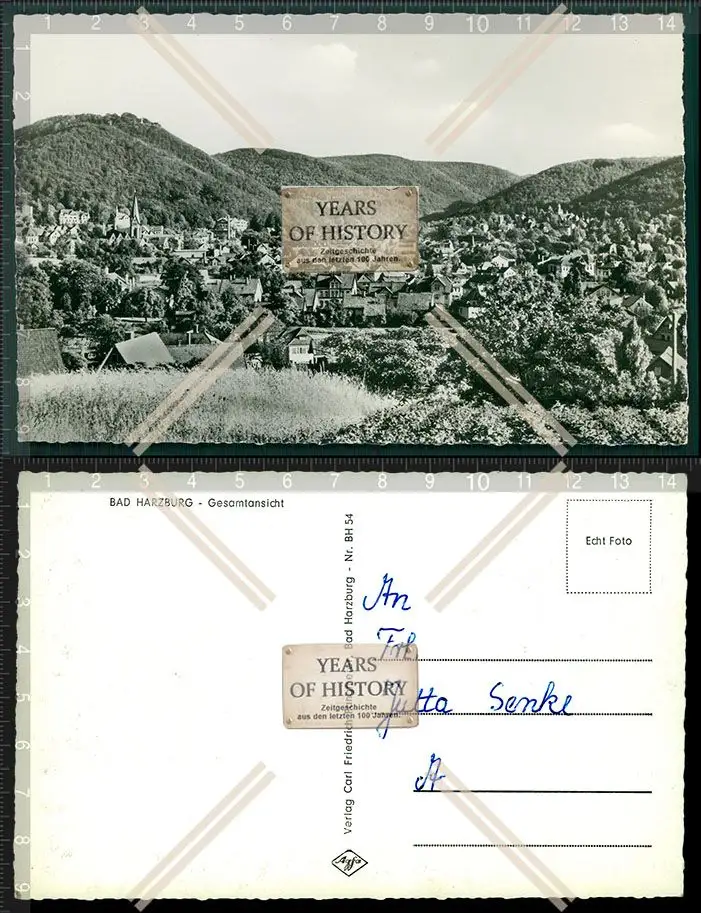 1 2 3 4 5 6 7 8 9 10 11 12 13 14
YEARS
OF HISTORY
Zeitgeschichte
aus den letzten 100 Jahren.
1 2 3 4 5 6 7 8 9 10 11 12 13 14
BAD HARZBURG - Gesamtansicht
Echt Foto
Verlag Carl Friedrich Bad Harzburg - Nr. BH 54
An
Frl
YEARS
OF HISTORY
Zeitgeschichte
aus den letzten 100 Jahren.
Jutta Senke
A
Agfa